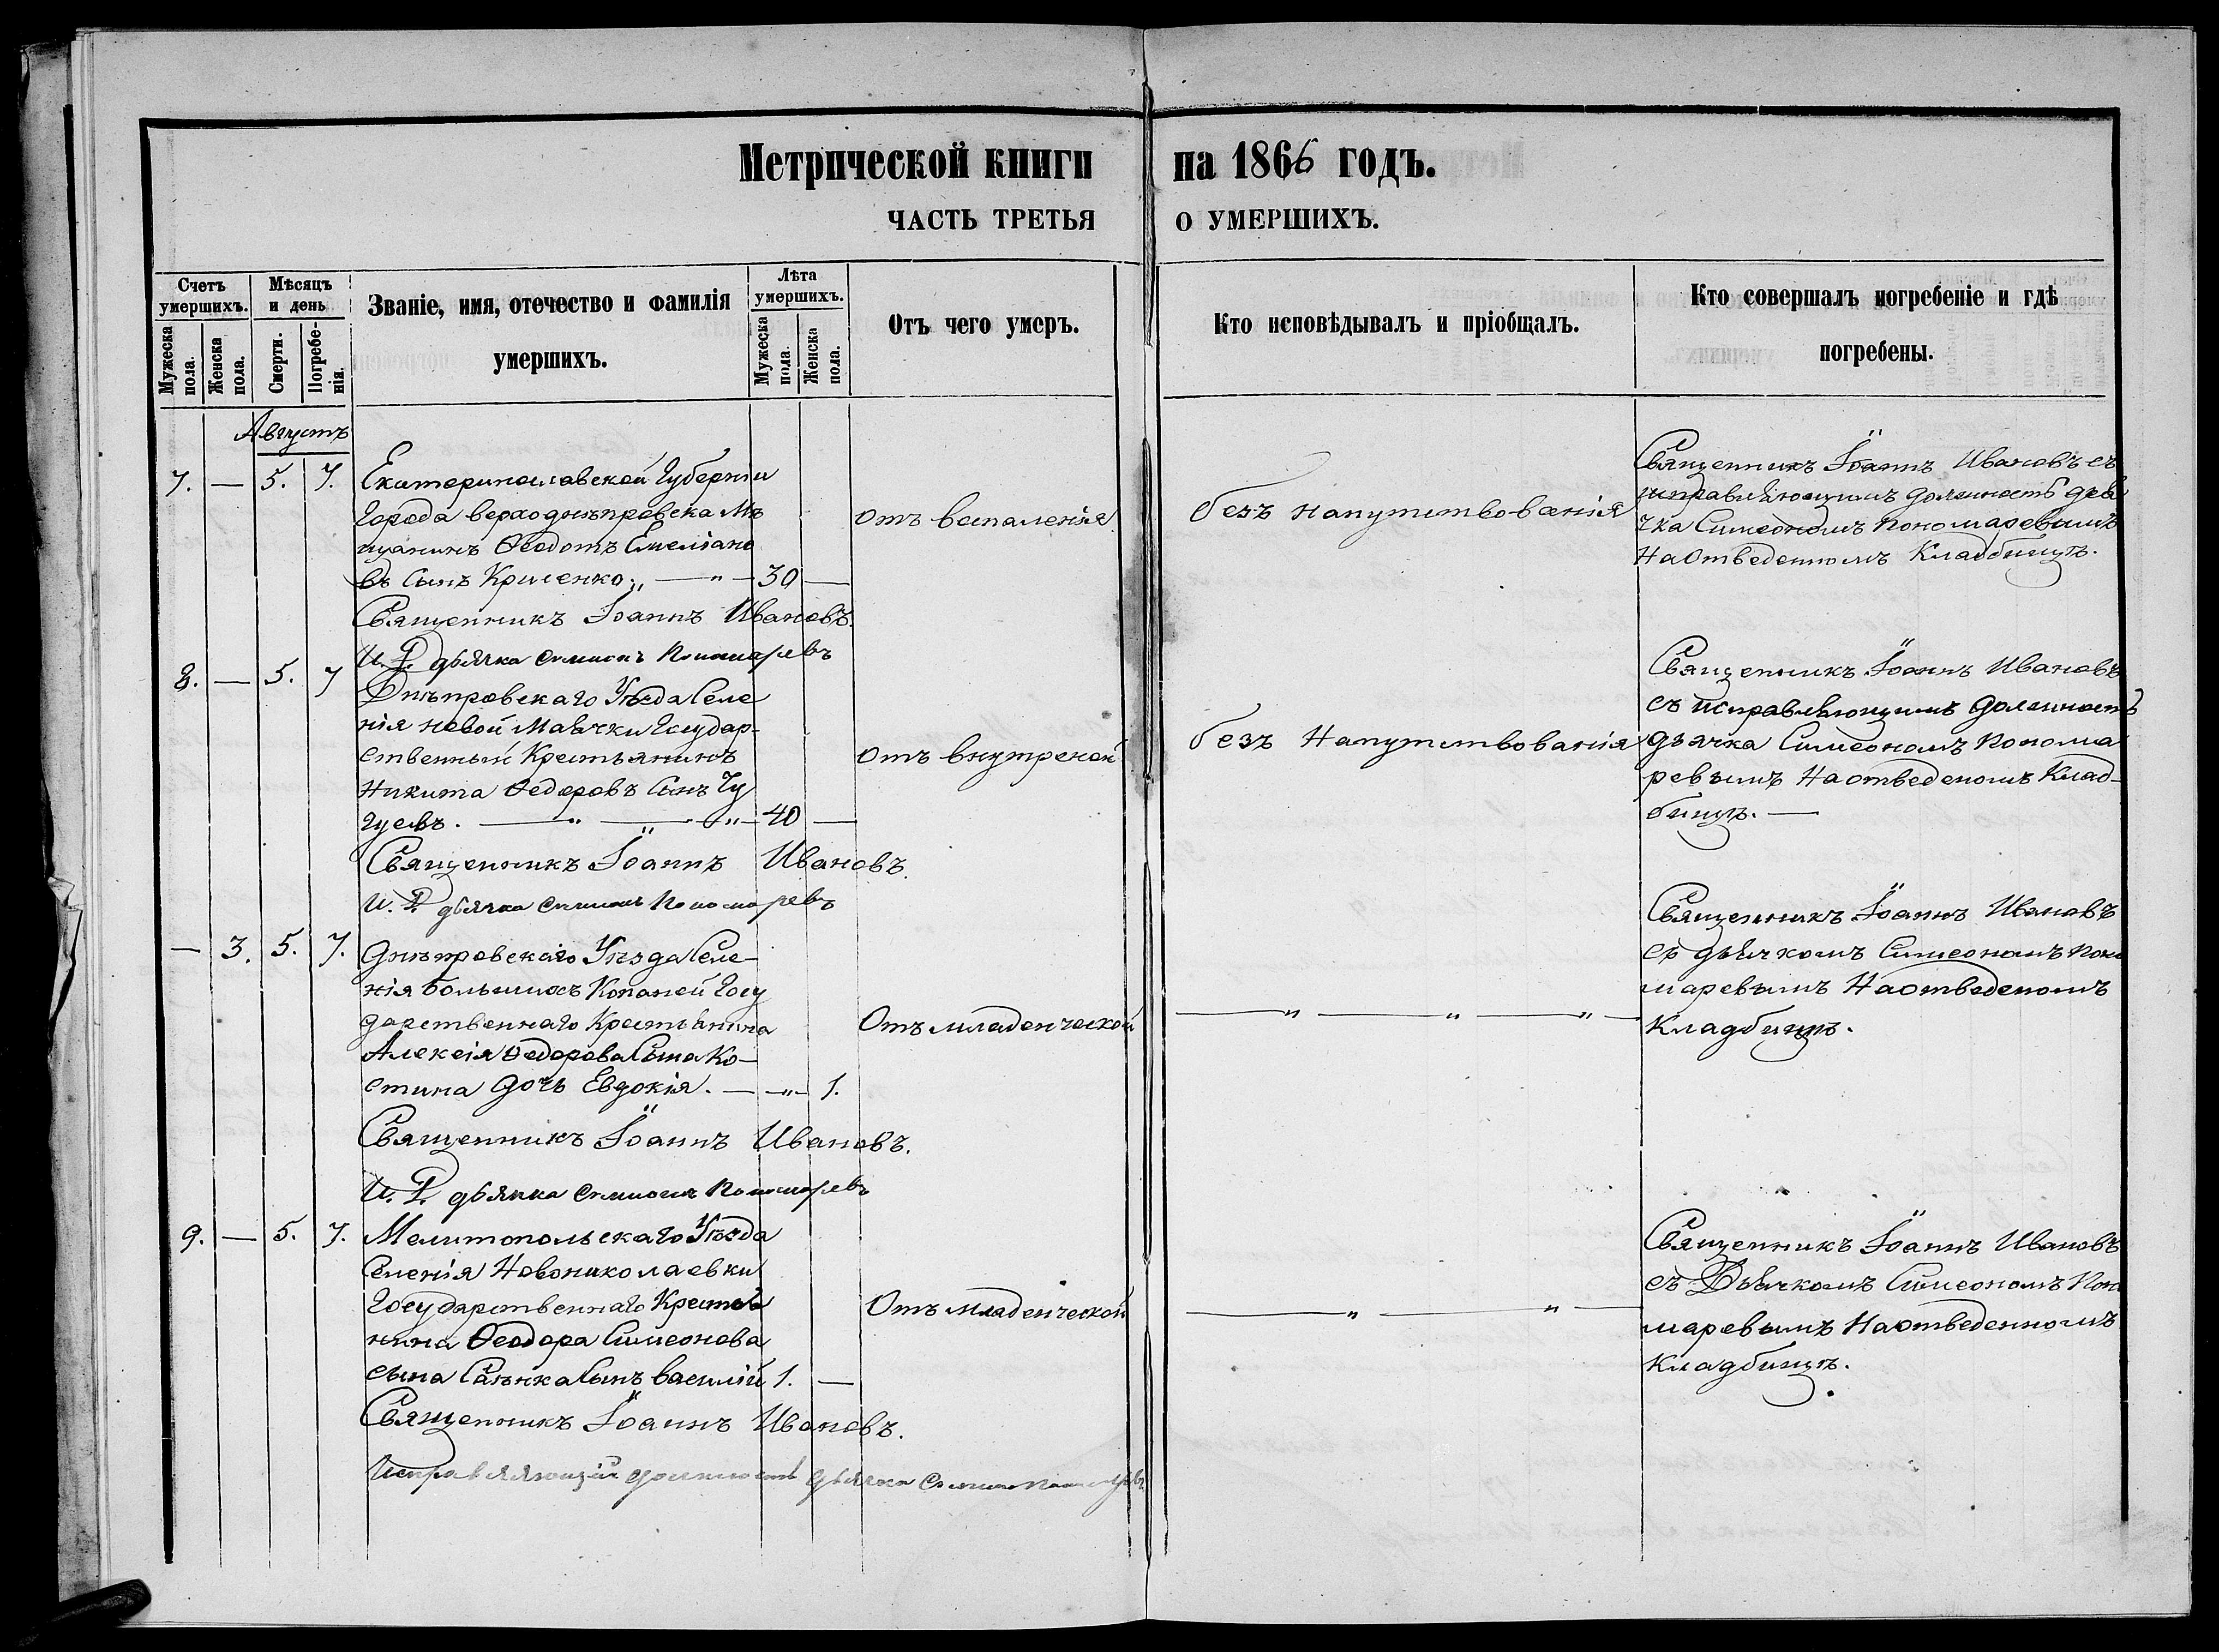 Метрической книги на 1866 годъ.
ЧАСТЬ ТРЕТЬЯ О УМЕРШИХЪ.
Счетъ умершихъ.
Мужеска пола.
Женска пола.
Мѣсяцъ и день
Смерти.
Погребенія.
Званіе, имя, отечество и фамилія
умершихъ.
Лѣта умершихъ.
Мужеска пола.
Женска пола.
Отъ чего умеръ.
Кто исповѣдывалъ и пріобщалъ.
Кто совершалъ погребеніе и гдѣ
погребены.
Августъ
7. — 5. 7.
Екатеринославской Губерніи
Города верходнѣпровска Мѣ
щанинъ Ѳеодотъ Емеліано
въ Сынъ Криленко. — 30 —
Священникъ Іоаннъ Ивановъ.
И. Д. дьячка Симионъ Пономаревъ
отъ воспаленія
безъ напутствованія
Священникъ Іоаннъ Ивановъ съ
исправляющимъ должность дья
чка Симеономъ Пономаревымъ
На Отведенномъ Кладбищѣ.
8. — 5. 7
Днѣпровскаго Уѣзда Селе
нія новой Маячки Государ-
ственный Крестьянинъ
Никита Ѳедоровъ Сынъ Чу
гуевъ. — " — " — 40 —
Священникъ Іоаннъ Ивановъ.
И. Д. дьячка Симионъ Пономаревъ
Отъ внутреной
безъ Напутствованія
Священникъ Іоаннъ Ивановъ
съ исправляющимъ должность
дьячка Симеономъ Понома
ревымъ На отведеномъ Клад-
бищѣ. —
— 3. 5. 7.
Днѣпровскаго Уѣзда Селе-
нія большихъ Копаней Госу
дарственнаго Крестьянина
Алексія Ѳедорова Сына Ко-
стина дочь Евдокія. — " — 1.
Священникъ Іоаннъ Ивановъ.
И. Д. дьячка Симионъ Пономаревъ
Отъ младенческой
— " — " — " —
Священникъ Іоаннъ Ивановъ
съ дьячкомъ Симеономъ Поно
маревымъ На отведеномъ
Кладбищѣ.
9. — 5. 7.
Мелитопольскаго Уѣзда
Селенія Новониколаевки
Государственнаго Крестья
нина Ѳеодора Симеонова
сына Сынъ василій 1. —
Священникъ Іоаннъ Ивановъ.
Исправляющій должность дьячка Симионъ Пономаревъ
Отъ младенческой
— " — " —
Священникъ Іоаннъ Ивановъ
съ Дьячкомъ Симеономъ Поно
маревымъ На отведенномъ
Кладбищѣ.